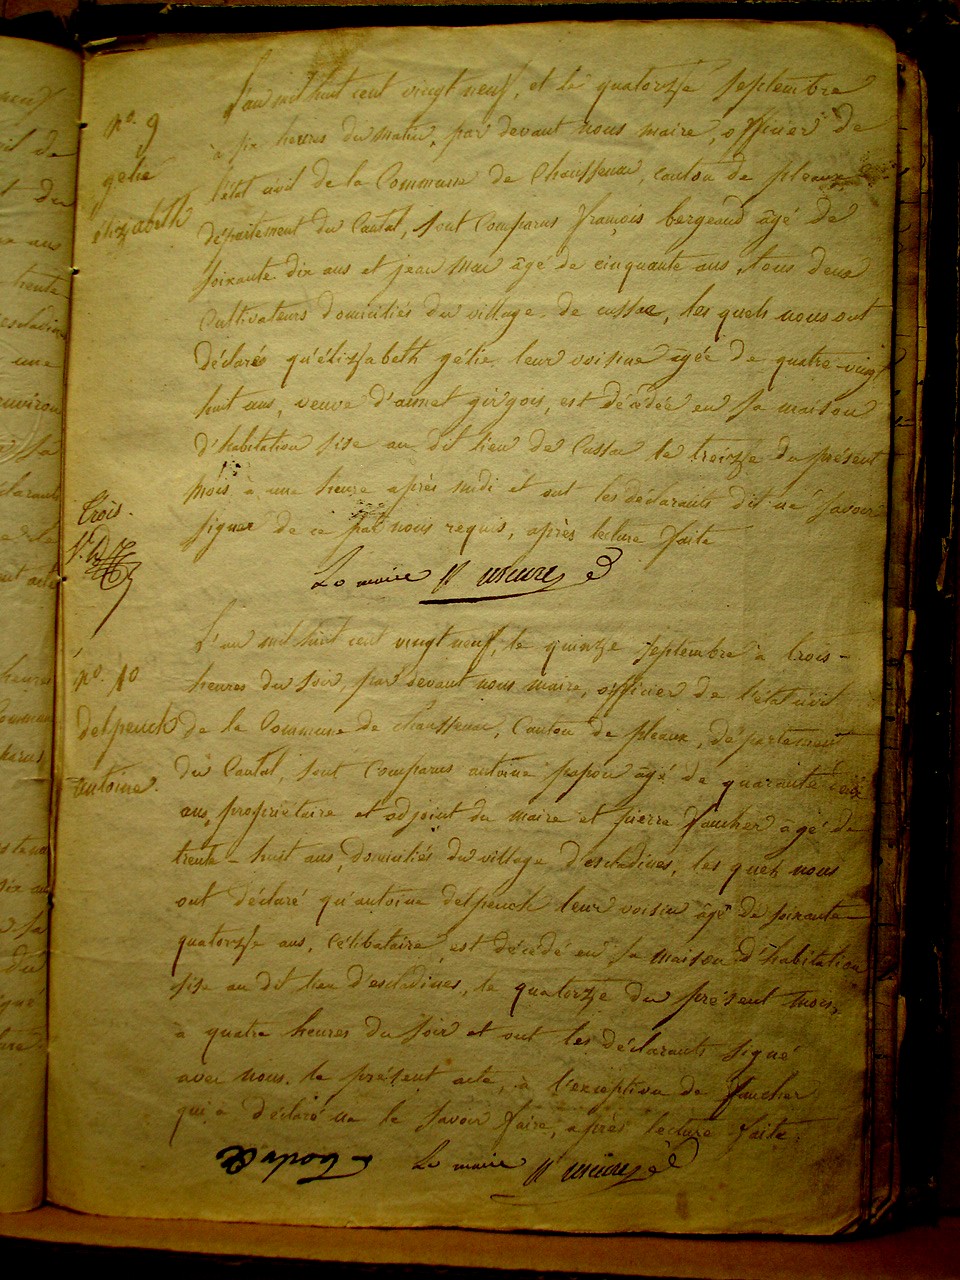 n°. 9
gélie
élizabeth
L'an mil huit cent vingt neuf, et le quatorze septembre
à six heures du matin, par devant nous maire, officier de
l'état civil de la Commune de Chaussenac, canton de pleaux
département du Cantal, sont Comparus françois bergeaud âgé de
soixante dix ans et jean mac âgé de cinquante ans, tous deux
Cultivateurs domiciliés du village de cussac, les quels nous ont
déclaré qu'élizabeth gélie leur voisine âgée de quatre-vingt
huit ans, veuve d'annet girgois, est décédée en sa maison
d'habitation sise au dit lieu de Cussac le treize du présent
mois à une heure après midi et ont les déclarants dit ne savoir
signer de ce par nous requis, après lecture faite
Le maire
trois
n°. 10
delpeuch
antoine.
L'an mil huit cent vingt neuf, le quinze septembre à trois-
heures du soir, par devant nous maire, officier de l'état civil
de la Commune de chaussenac, Canton de pleaux, département
du Cantal, sont Comparus antoine papon âgé de quarante deux
ans, propriétaire et adjoint du maire et pierre faucher âgé de
trente-huit ans, domiciliés du village d'escladines, les quels nous
ont déclaré qu'antoine delpeuch leur voisin âgé de soixante-
quatorze ans, célibataire, est décédé en sa maison d'habitation
sise au dit lieu d'escladines, le quatorze du présent mois,
à quatre heures du soir et ont les déclarants signé
avec nous le présent acte, à l'exception de faucher
qui a déclaré ne le savoir faire, après lecture faite,
Le maire